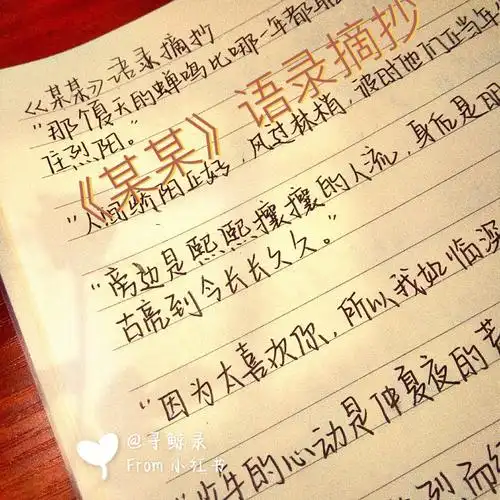 《某某》语录摘抄
"那个夏天的蝉鸣比哪一年都
住烈阳。"
《某某》语录摘抄
"人间骄阳正好,风过林梢,彼时他们正当年
"旁边是熙熙攘攘的人流,身后是明
古亮到今长长久久。"
"因为太喜欢你,所以我如临深
"少年的心动是仲夏夜的荒
到而
@寻鲸录
From 小红书